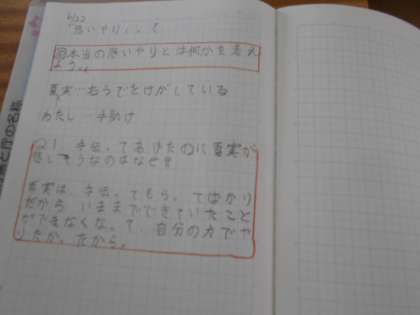 6/22
「思いやり」って
め本当の思いやりとは何かを考え
よう。
真実…右うでをけがしている
わたし…手助け
Q1 手伝ってあげたのに真実が
悲しそうなのはなぜ?
真実は、手伝ってもらってばかり
だから、いままでできていたこと
ができなくなって、自分の力でや
りたかったから。